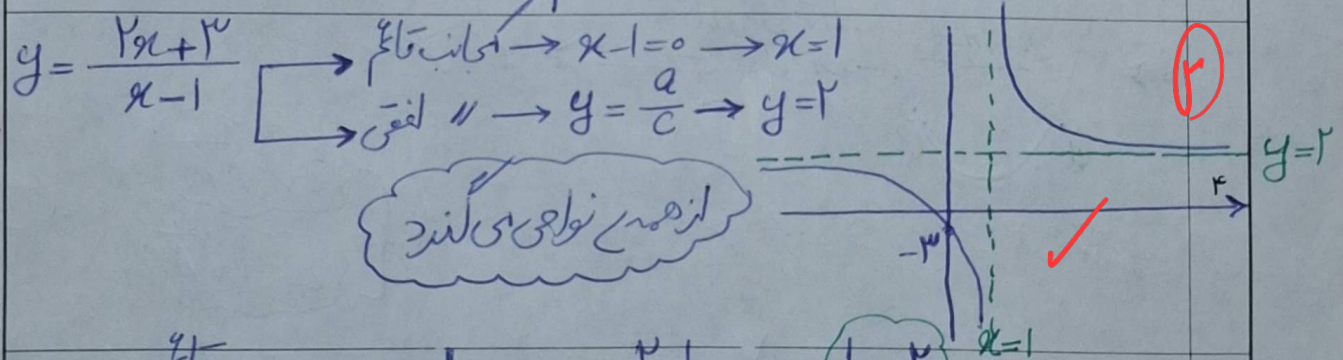 y = ۲x+۳ / x-1 → مجانب قائم → x-1=0 → x=1
→ 〃 افقی → y = a/c → y=۲
از همه ی نواحی می گذرد
۲
y=۲
-۳
x=1